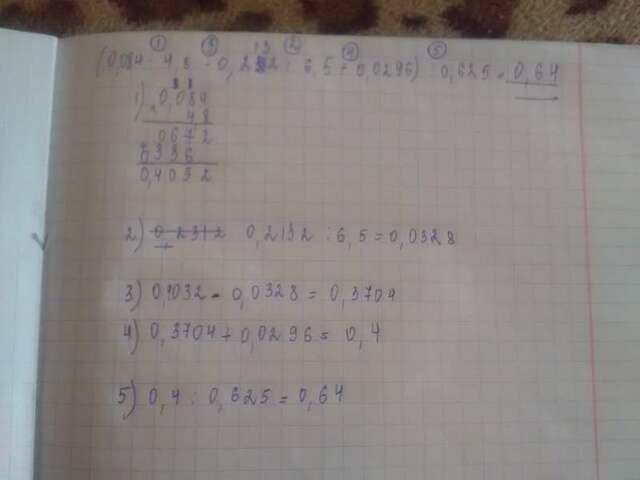 ① ③ 13 ② ④ ⑤
(0,084 · 4,8 - 0,232 : 6,5 + 0,0296) : 0,625 = 0,64
8 8
1) × 0,084
4,8
0672
0336
0,4032
2) 0,2312 0,2132 : 6,5 = 0,0328
3) 0,4032 - 0,0328 = 0,3704
4) 0,3704 + 0,0296 = 0,4
5) 0,4 : 0,625 = 0,64